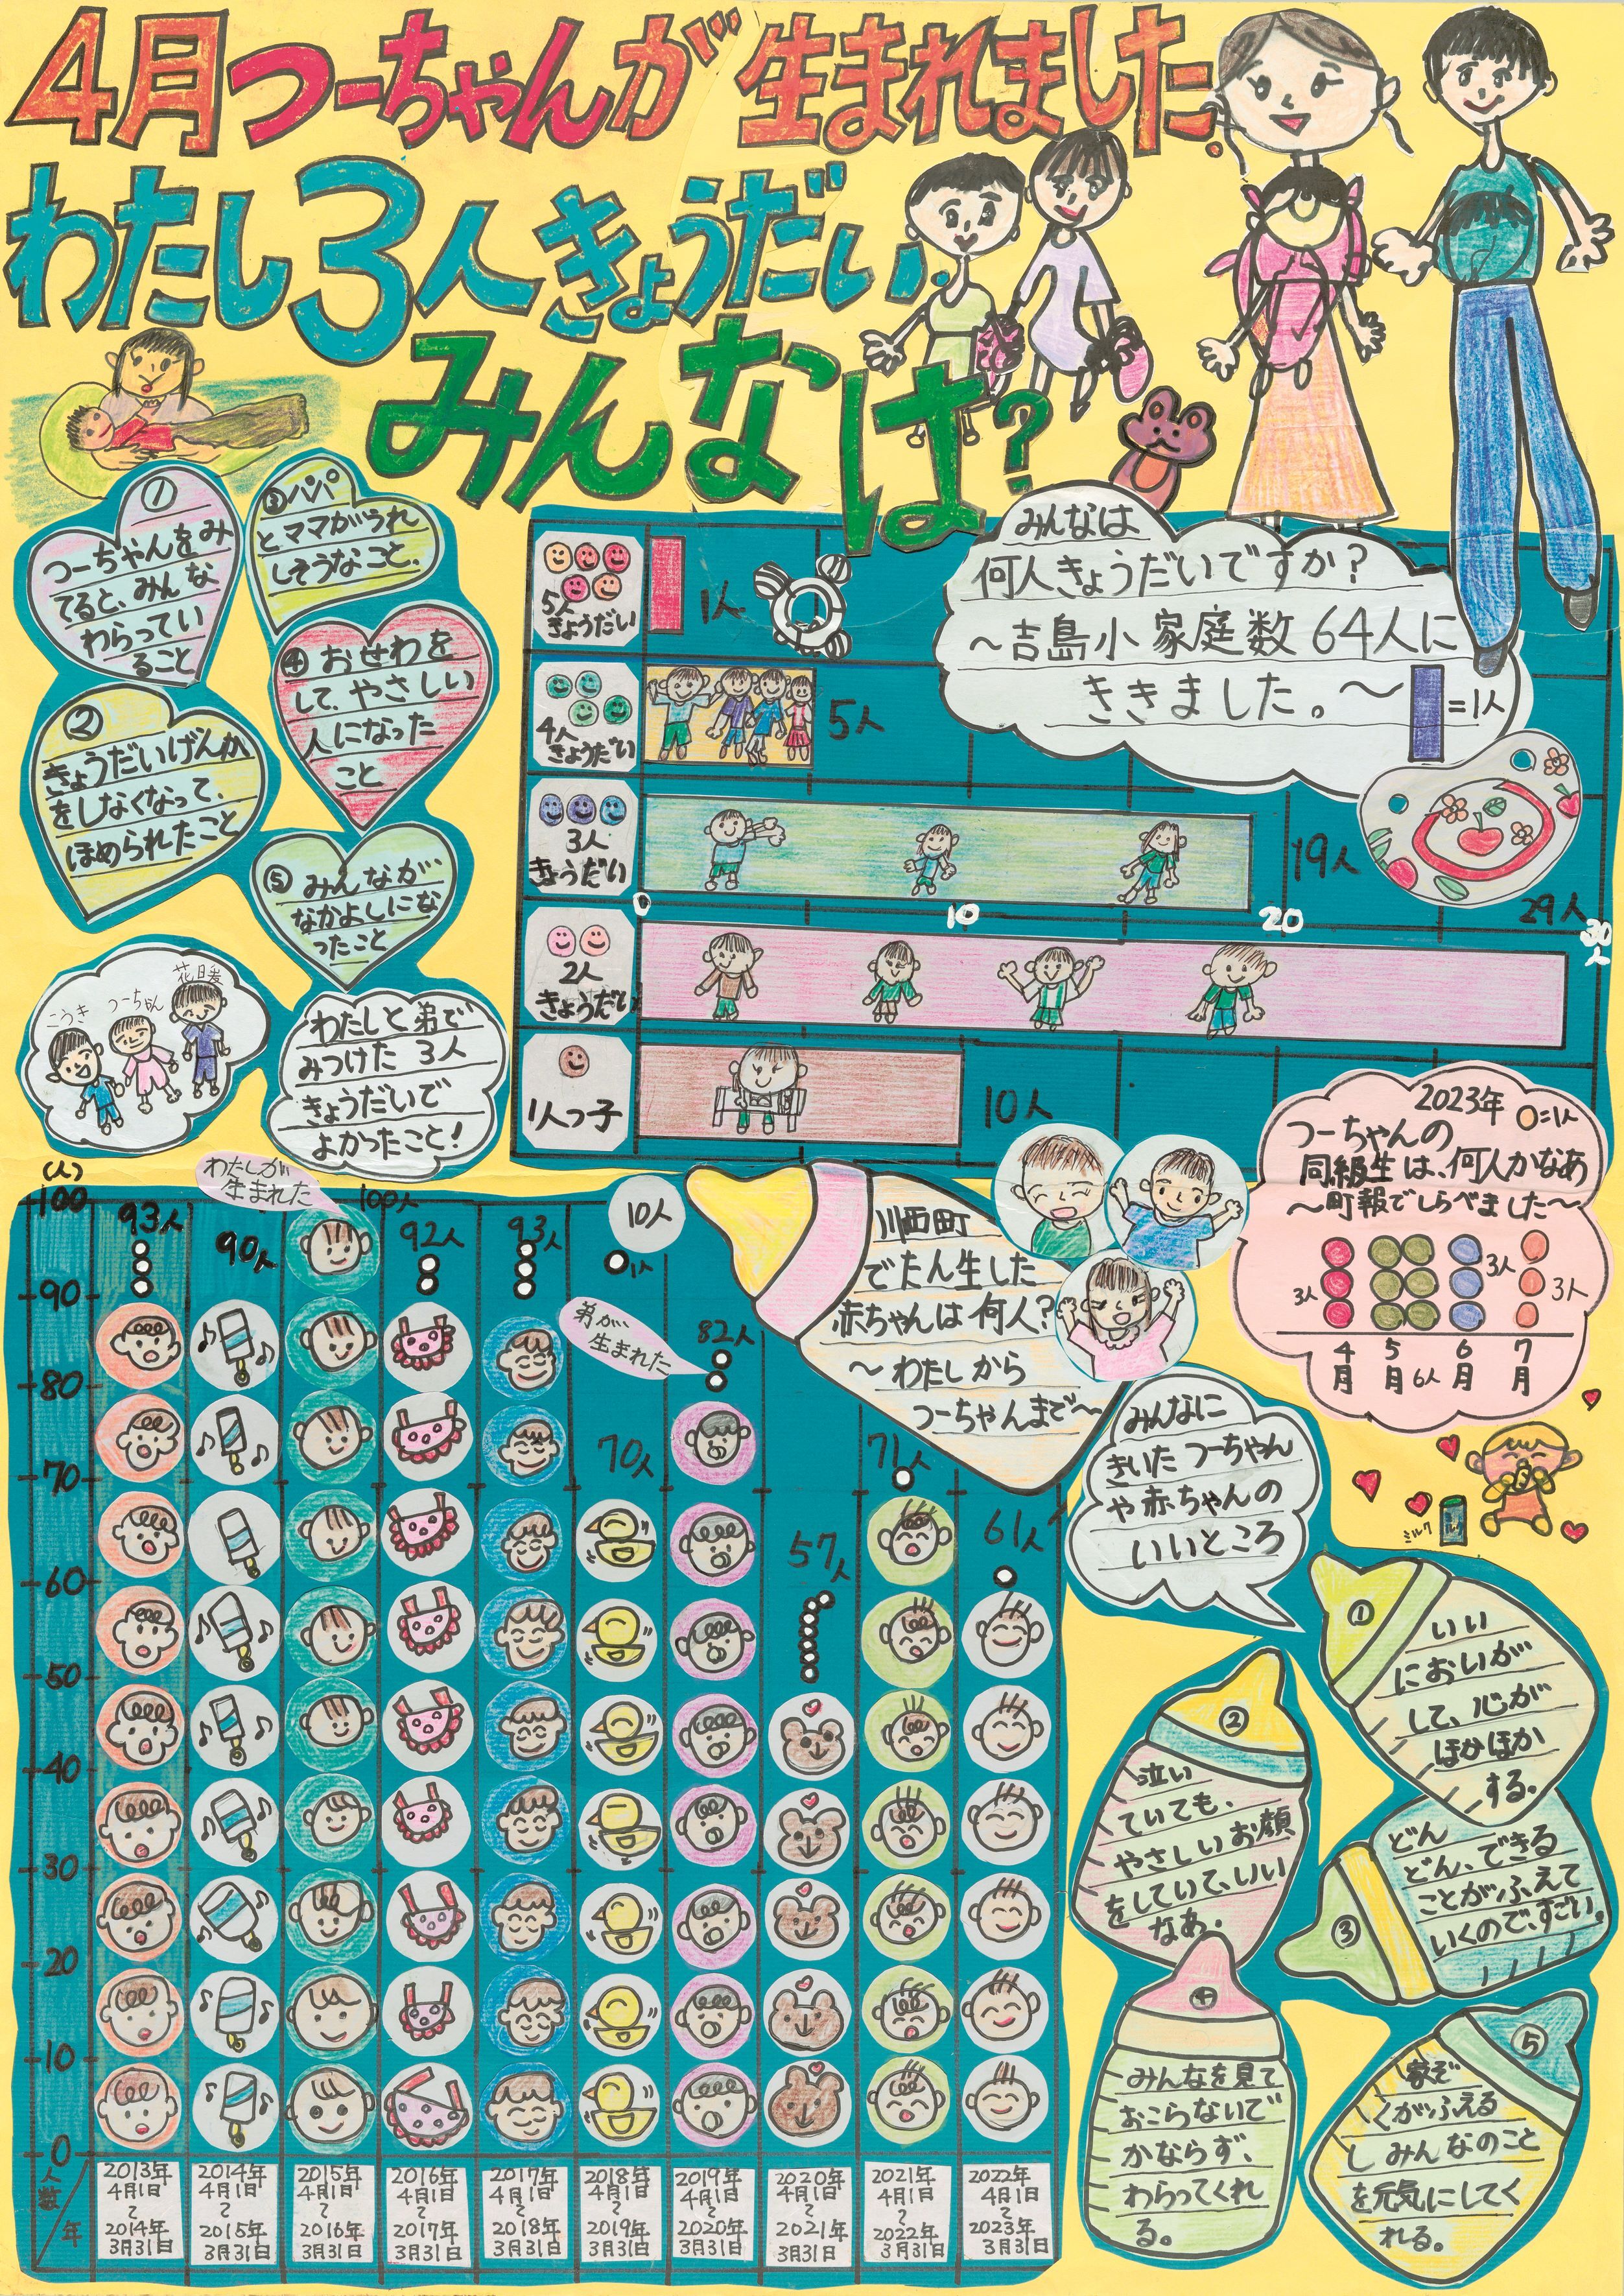 4月つーちゃんが生まれました。
わたし3人きょうだい。
みんなは?
①
つーちゃんをみ
てると、みんな
わらってい
ること
③パパ
とママがうれ
しそうなこと。
②
きょうだいげんか
をしなくなって、
ほめられたこと
④おせわを
して、やさしい
人になった
こと
⑤みんなが
なかよしにな
ったこと
こうき
つーちゃん
花暖
わたしと弟で
みつけた3人
きょうだいで
よかったこと!
みんなは
何人きょうだいですか?
~吉島小家庭数64人に
ききました。~
=1人
5人
きょうだい
1人
4人
きょうだい
5人
3人
きょうだい
19人
0
10
20
30
人
2人
きょうだい
29人
1人っ子
10人
2023年 =1人
つーちゃんの
同級生は、何人かなあ
~町報でしらべました~
3人
3人
3人
4月
5月
6人
6月
7月
川西町
でたん生した
赤ちゃんは何人?
~わたしから
つーちゃんまで~
(人)
100
90
80
70
60
50
40
30
20
10
0
人数
年
わたしが
生まれた
弟が
生まれた
10人
1人
93人
90人
100人
92人
93人
70人
82人
57人
71人
61人
2013年
4月1日
~
2014年
3月31日
2014年
4月1日
~
2015年
3月31日
2015年
4月1日
~
2016年
3月31日
2016年
4月1日
~
2017年
3月31日
2017年
4月1日
~
2018年
3月31日
2018年
4月1日
~
2019年
3月31日
2019年
4月1日
~
2020年
3月31日
2020年
4月1日
~
2021年
3月31日
2021年
4月1日
~
2022年
3月31日
2022年
4月1日
~
2023年
3月31日
みんなに
きいたつーちゃん
や赤ちゃんの
いいところ
ミルク
①
いい
においが
して、心が
ほかほか
する。
②
泣い
ていても、
やさしいお顔
をしていて、いい
なあ。
③
どん
どん、できる
ことがふえて
いくので、すごい。
④
みんなを見て
おこらないで
かならず、
わらってくれ
る。
⑤
家ぞ
くがふえる
しみんなのこと
を元気にしてく
れる。